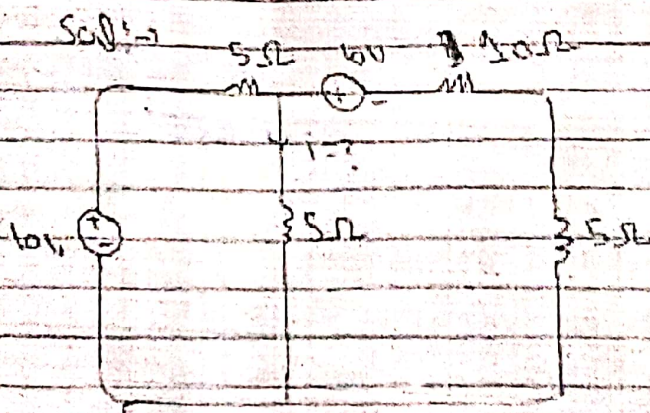 Soln:-
5Ω 10V 10Ω
+ -
i=?
+
-
10V 5Ω 5Ω